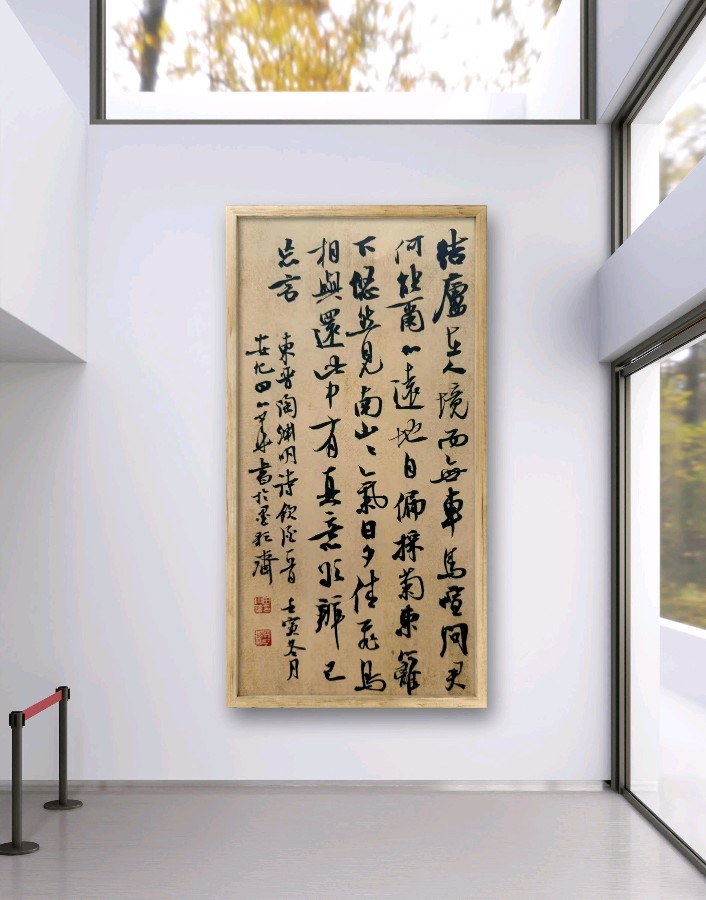 結廬在人境而無車馬喧問君
何能爾心遠地自偏採菊東籬
下悠然見南山〻氣日夕佳飛鳥
相與還此中有真意欲辨已
忘言
東晉陶淵明詩飲酒一首 壬寅冬月
安化田書於墨耘齋